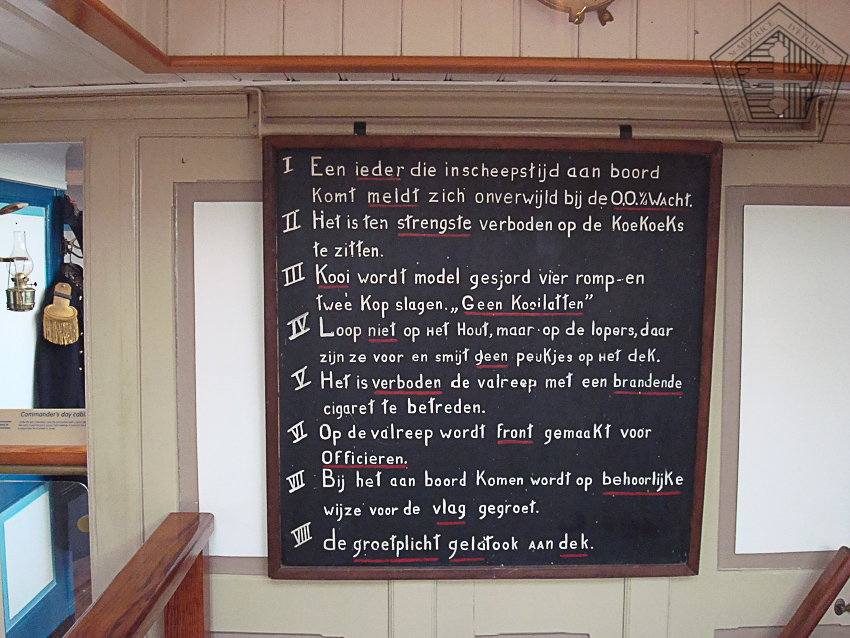 I Een ieder die inscheepstijd aan boord
Komt meldt zich onverwijld bij de O.O.%Wacht.
II Het is ten strengste verboden op de KoeKoeKs
te zitten.
III Kooi wordt model gesjord vier romp-en
twee Kop slagen. „Geen Kooilatten”
IV Loop niet op Het Hout, maar op de lopers, daar
zijn ze voor en smijt geen peukjes op Het deK.
V Het is verboden de valreep met een brandende
cigaret te betreden.
VI Op de valreep wordt front gemaaKt voor
Officieren.
VII Bij het aan boord Komen wordt op behoorlijKe
wijze voor de vlag gegroet.
VIII de groetplicht geldt ook AAN dek.
Commander's day cabi